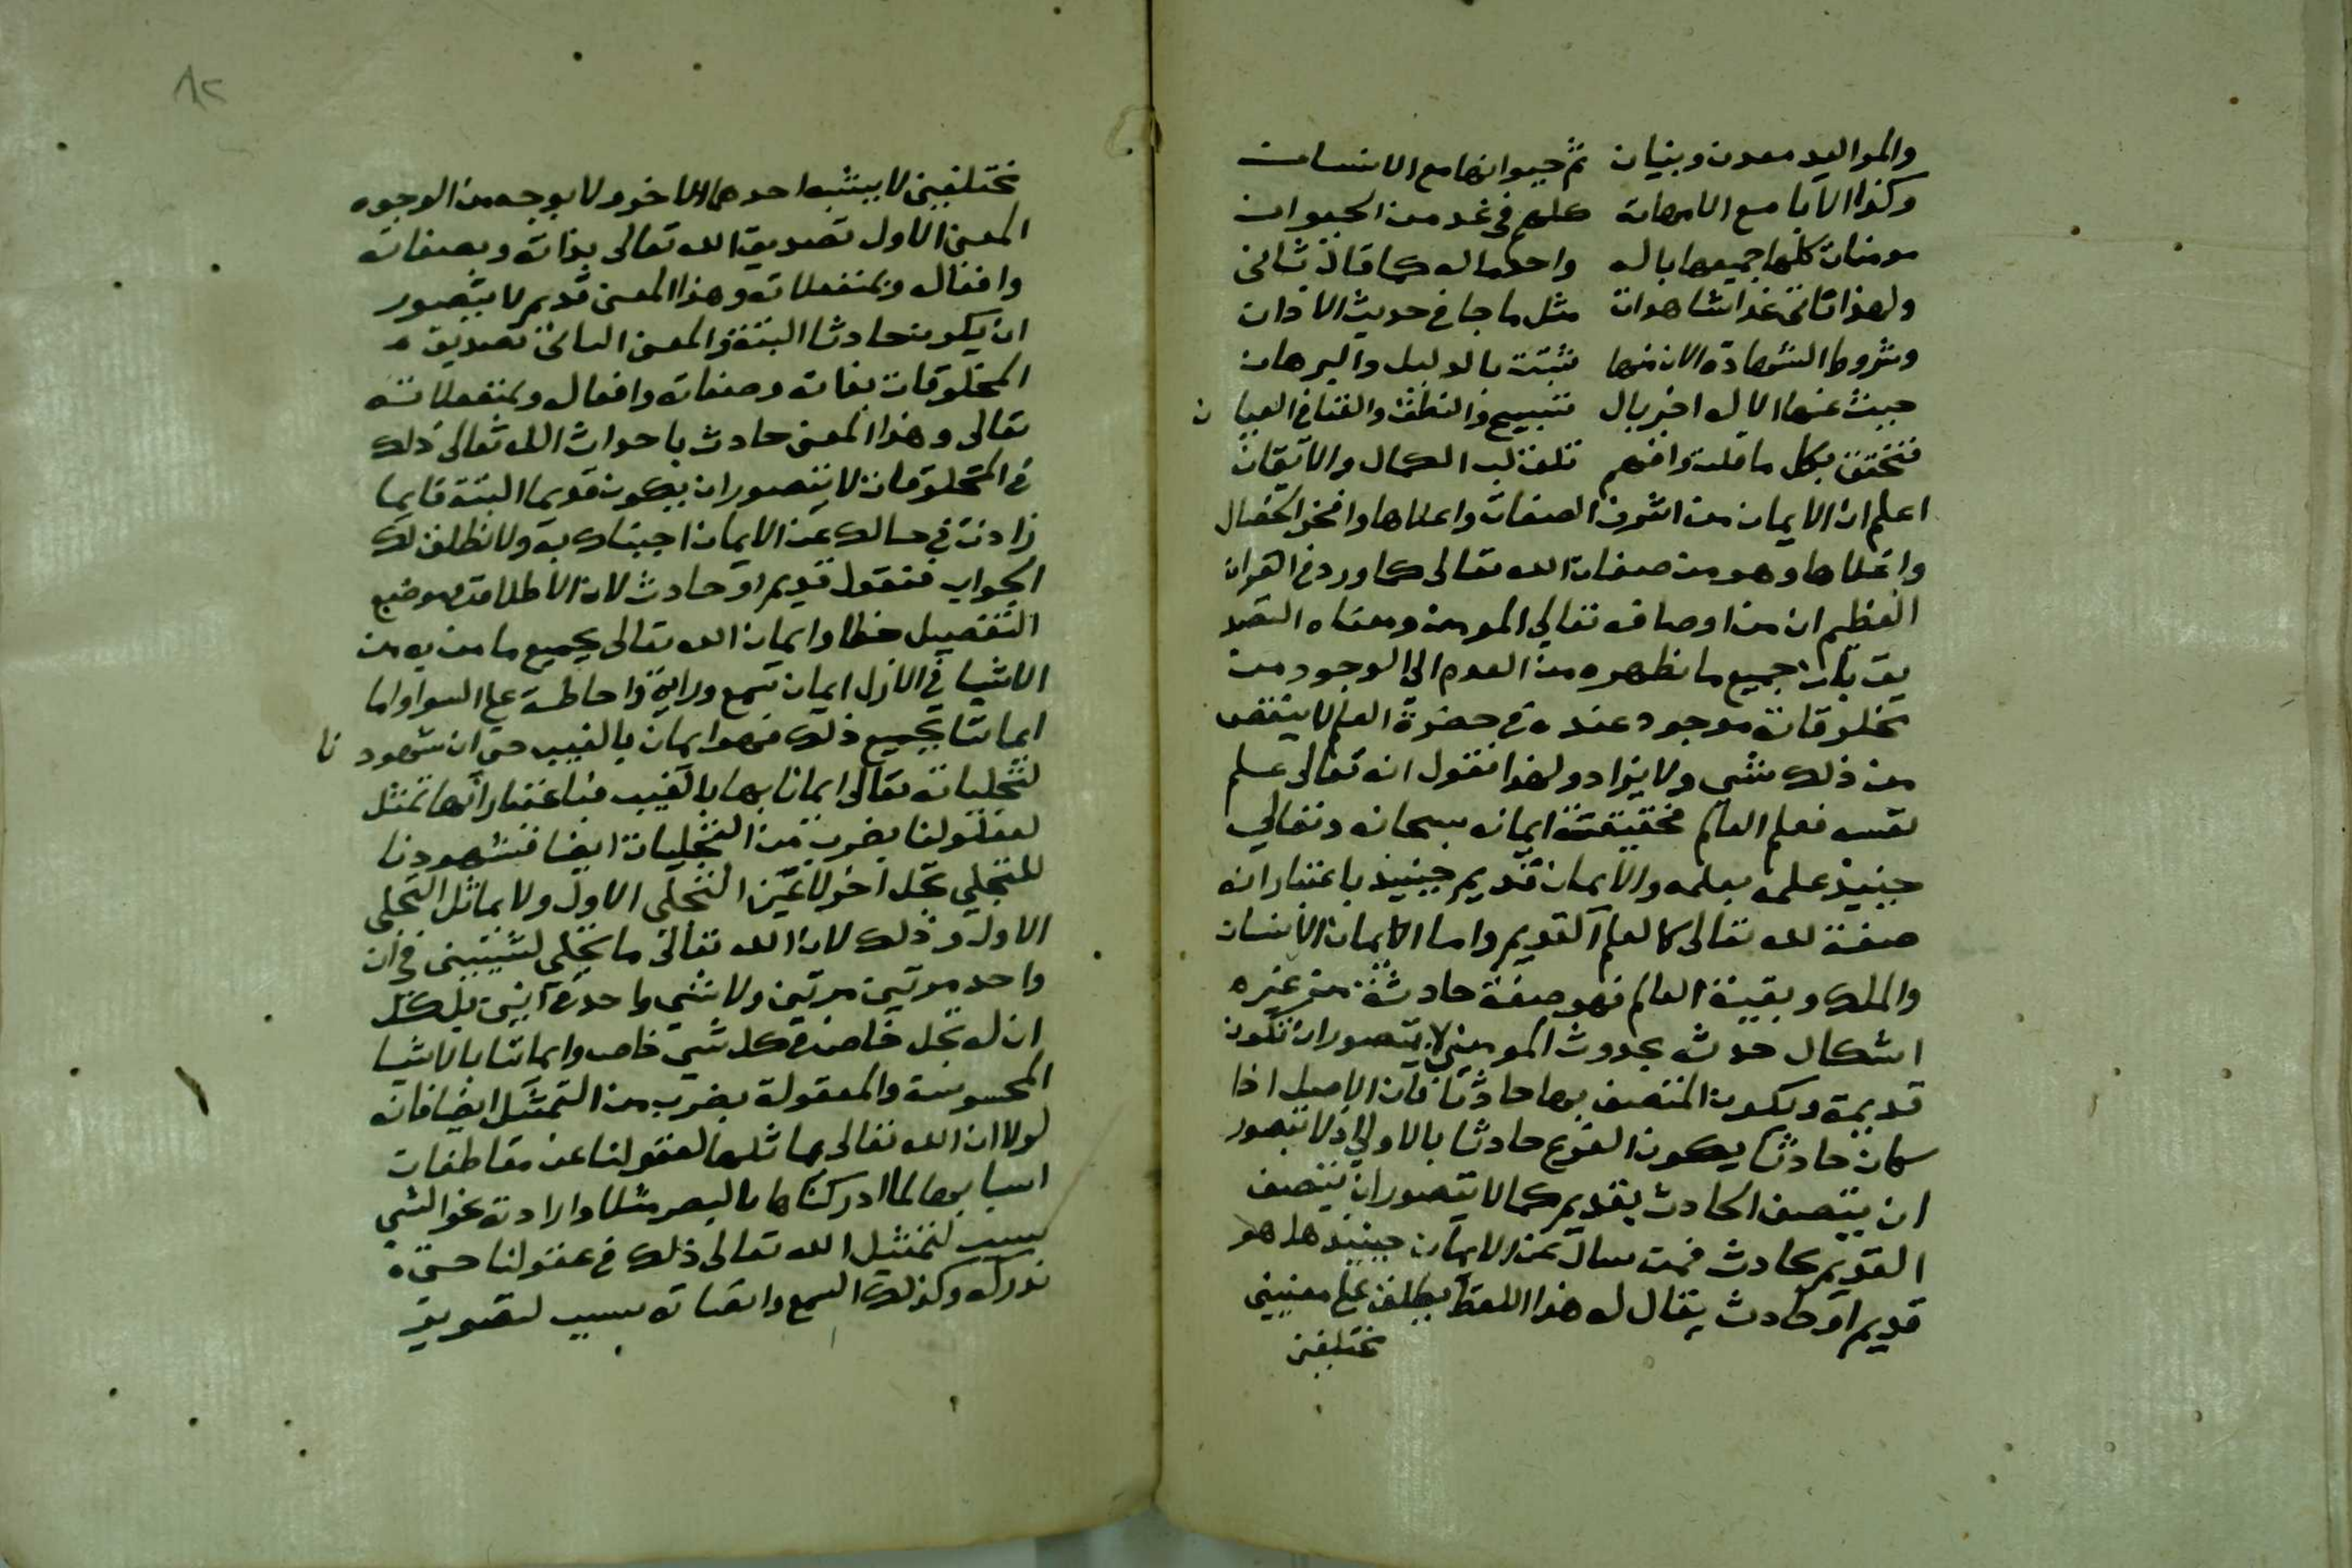 والمواليد معدن وبنيان ثم حيوانها مع الانسان
وكذا الآبا مع الامهات كلهم في غد من الحيوان
مومنات كلها جميعها بالله واحد ماله كما قال ثاني
ولهذا تاتي غدا شاهدات مثل ما جا في حديث الاذان
وشروط الشهادة الان منها تثبتت بالدليل والبرهان
حيث عنها الاله اخبر بال تسبيح والنطق والقنا في العيان
فتحقق بكل ما قلت وافهم تلق لب الكمال والايقان
اعلم ان الايمان من اشرف الصفات واعلاها وافخر الخصال
واغلاها وهو من صفات الله تعالى كما ورد في القران
العظيم ان من اوصافه تعالي المومن ومعناه التصد
يق بان جميع ما نظهره من العدم الى الوجود من
مخلوقاته موجود عنده في حضرة العلم لا ينقص
من ذلك شي ولا يزاد ولهذا نقول انه تعالى علم
نفسه فعلم العالم فحقيقة ايمانه سبحانه وتعالي
حينيذ علمه بعلمه والايمان قديم حينيذ باعتبار انه
صفة لله تعالى كالعلم القديم واما الايمان الانسان
والملك وبقية العالم فهو صفة حادثة من غيره
اشكال حدثه بحدوث المومنين لا يتصور ان تكون
قديمة ويكون المتصف بها حادثا فان الاصل اذا
كان حادثا يكون الفرع حادثا بالاولي اذ لا يتصور
ان يتصف الحادث بقديم كما لا يتصور ان يتصف
القديم بحادث فمن سال عن الايمان حينيذ هل هو
قديم او حادث يقال له هذا اللفظ يطلق على معنيين
مختلفين
٨٢
مختلفين لا يشبه احدهما الاخر ولا بوجه من الوجوه
المعنى الاول تصديق الله تعالى بذاته وبصفاته
وافعاله وبمنفعلاته وهذا المعنى قديم لا يتصور
ان يكون حادثا البتة والمعنى الثاني تصديق
المخلوقات بذاته وصفاته وافعاله وبمنفعلاته
تعالى وهذا المعنى حادث باحداث الله تعالى ذلك
في المخلوقات لا يتصور ان يكون قديما البتة فايما
زادت في سالك عن الايمان اجبناك به ولا نطلق لك
الجواب فنقول قديم او حادث لان الاطلاق في موضع
التفصيل خطا وايمان الله تعالى بجميع ما من به من
الاشيا في الازل ايمان سمع وراية واحاطة على السوا واما
ايماننا بجميع ذلك فهو ايمان بالغيب حتى ان شهودنا
لتجلياته تعالى ايماننا بها بالغيب فباعتبار انها تمثل
لعقولنا بضرب من التجليات ايضا فشهودنا
للتجلي تجل اخر لا عين التجلي الاول ولا يماثل التجلي
الاول وذلك لان الله تعالى ما يتجلي لشيئين في ان
واحد مرتين مرتين ولا شي واحد في آنين بل كل
ان له تجل خاص في كل شي خاص وايماننا بالاشيا
المحسوسة والمعقولة بضرب من التمثل ايضا فانه
لولا ان الله تعالى يماثلها لعقولنا عن مقاطفات
اسبابها لما ادركناها بالبصر مثلا وارادته نحو الشي
سبب لتمثيل الله تعالى ذلك في عقولنا حتى
ندركه وكذلك السمع وانصاته سبب لتصوير